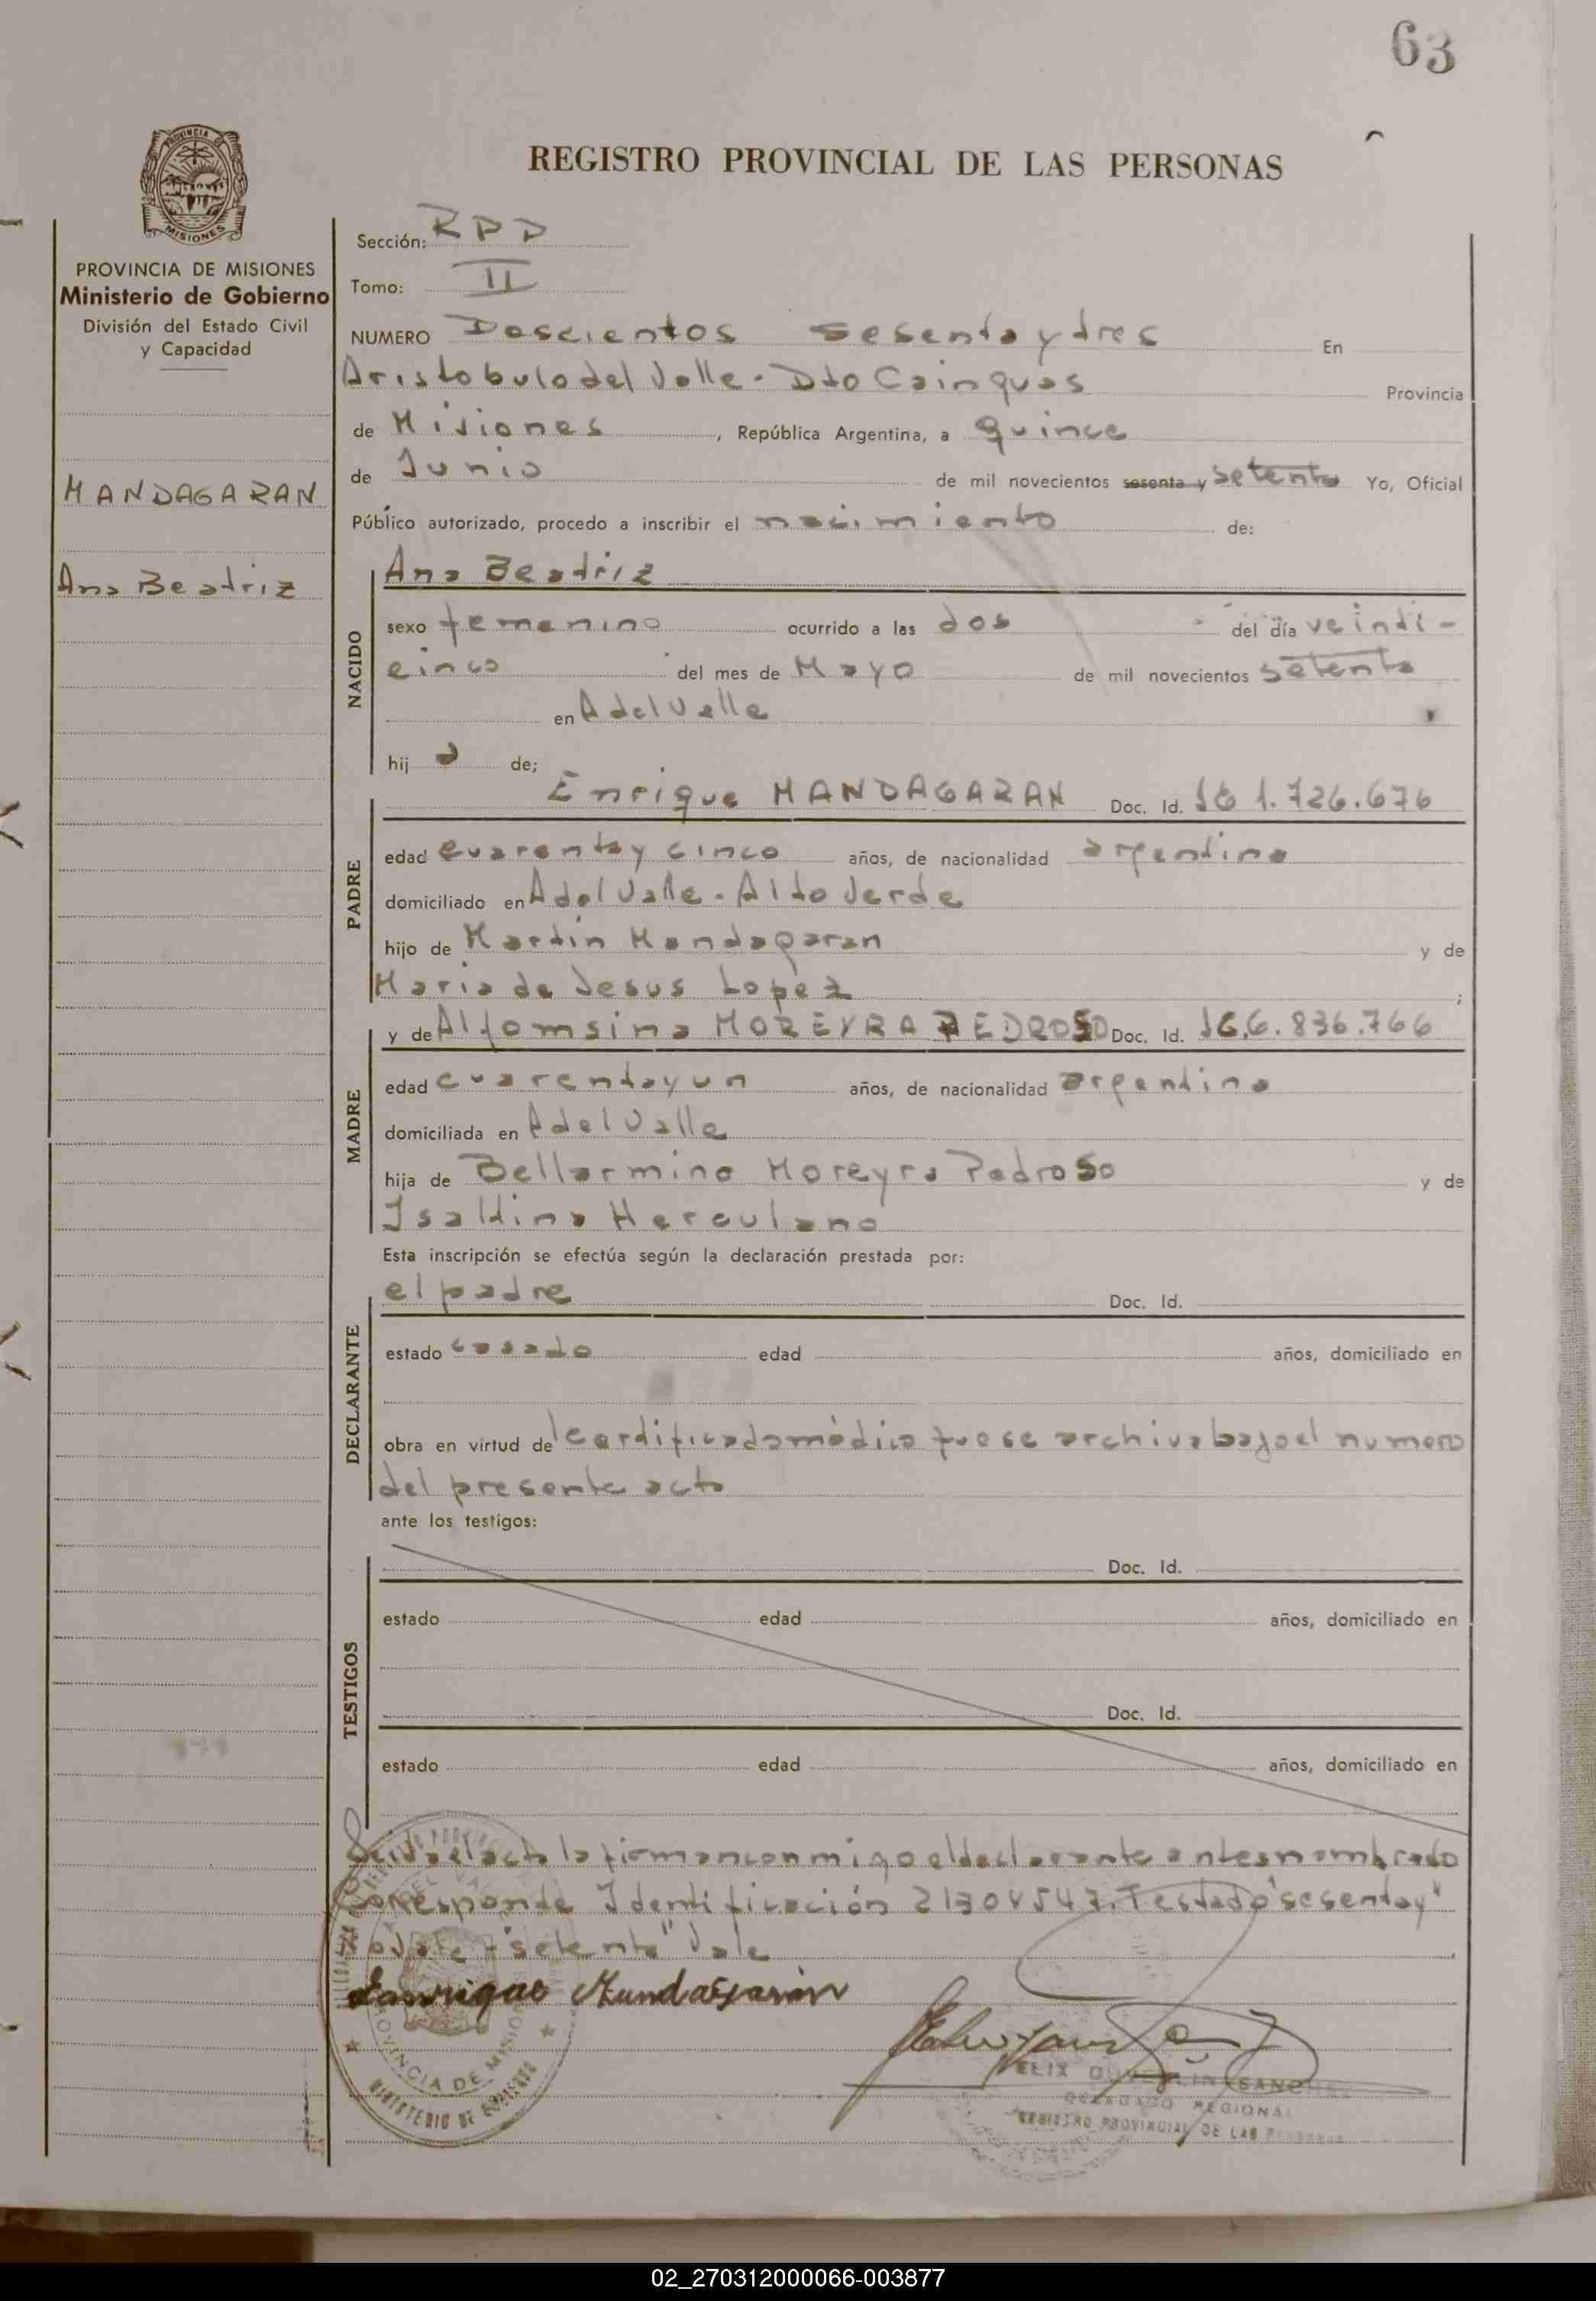 63
REGISTRO PROVINCIAL DE LAS PERSONAS
PROVINCIA DE MISIONES
Ministerio de Gobierno
División del Estado Civil
y Capacidad
MANDAGARAN
Ana Beatriz
Sección: RPD
Tomo: II
NUMERO Doscientos sesenta y tres En
Aristobulo del Valle - Dto Cainguas Provincia
de Misiones, República Argentina, a quince
de Junio de mil novecientos sesenta y setenta Yo, Oficial
Público autorizado, procedo a inscribir el nacimiento de:
NACIDO
Ana Beatriz
sexo femenino ocurrido a las dos del día veinti-
cinco del mes de Mayo de mil novecientos setenta
en A del Valle
hij a de;
PADRE
Enrique MANDAGARAN Doc. Id. 1.726.676
edad cuarenta y cinco años, de nacionalidad argentina
domiciliado en A del Valle - Alto Verde
hijo de Martin Mandagaran y de
Maria de Jesus Lopez ;
MADRE
y de Alfomsina MOREYRA PEDROSO Doc. Id. 6.836.766
edad cuarenta y un años, de nacionalidad argentina
domiciliada en A del Valle
hija de Bellarmino Moreyra Pedroso y de
Isaldina Herculano
Esta inscripción se efectúa según la declaración prestada por:
DECLARANTE
el padre Doc. Id.
estado casado edad años, domiciliado en
obra en virtud del certificado médico que se archiva bajo el numero
del presente acta
ante los testigos:
TESTIGOS
Doc. Id.
estado edad años, domiciliado en
Doc. Id.
estado edad años, domiciliado en
el acta la firman conmigo el declarante antes nombrado
Corresponde Identificación 21304547. Testado "sesenta y"
"setenta" Vale
Enrique Mandagarán
FELIX SANCHEZ
DELEGADO REGIONAL
REGISTRO PROVINCIAL DE LAS PERSONAS
PROVINCIA DE MISIONES
MINISTERIO DE GOBIERNO
02_270312000066-003877